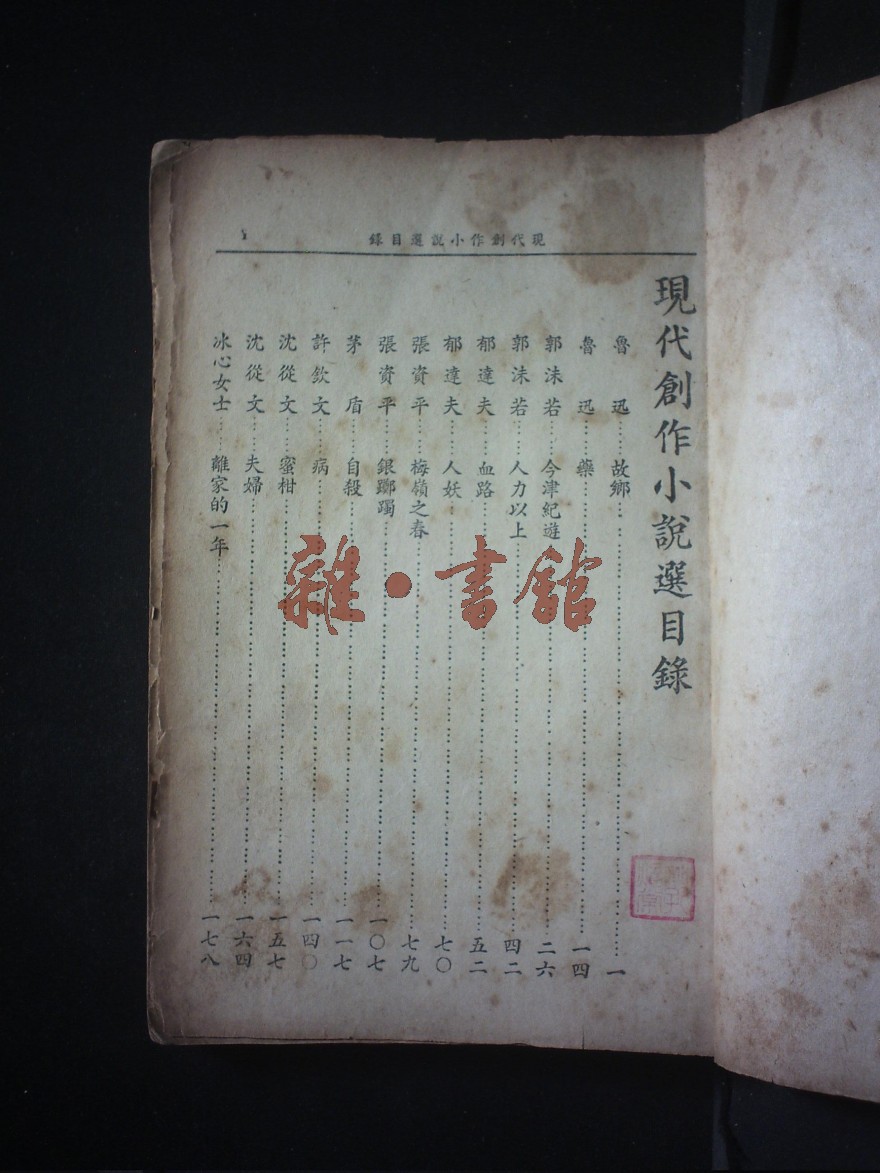 現代創作小說選目錄
現代創作小說選目錄
魯迅……故鄉……一
魯迅……藥……一四
郭沫若……今津紀遊……二六
郭沫若……人力以上……四二
郁達夫……血路……五二
郁達夫……人妖……七〇
張資平……梅嶺之春……七九
張資平……銀躑躅……一〇七
茅盾……自殺……一一七
許欽文……病……一四〇
沈從文……蜜柑……一五七
沈從文……夫婦……一六四
冰心女士……離家的一年……一七八
雜·書館